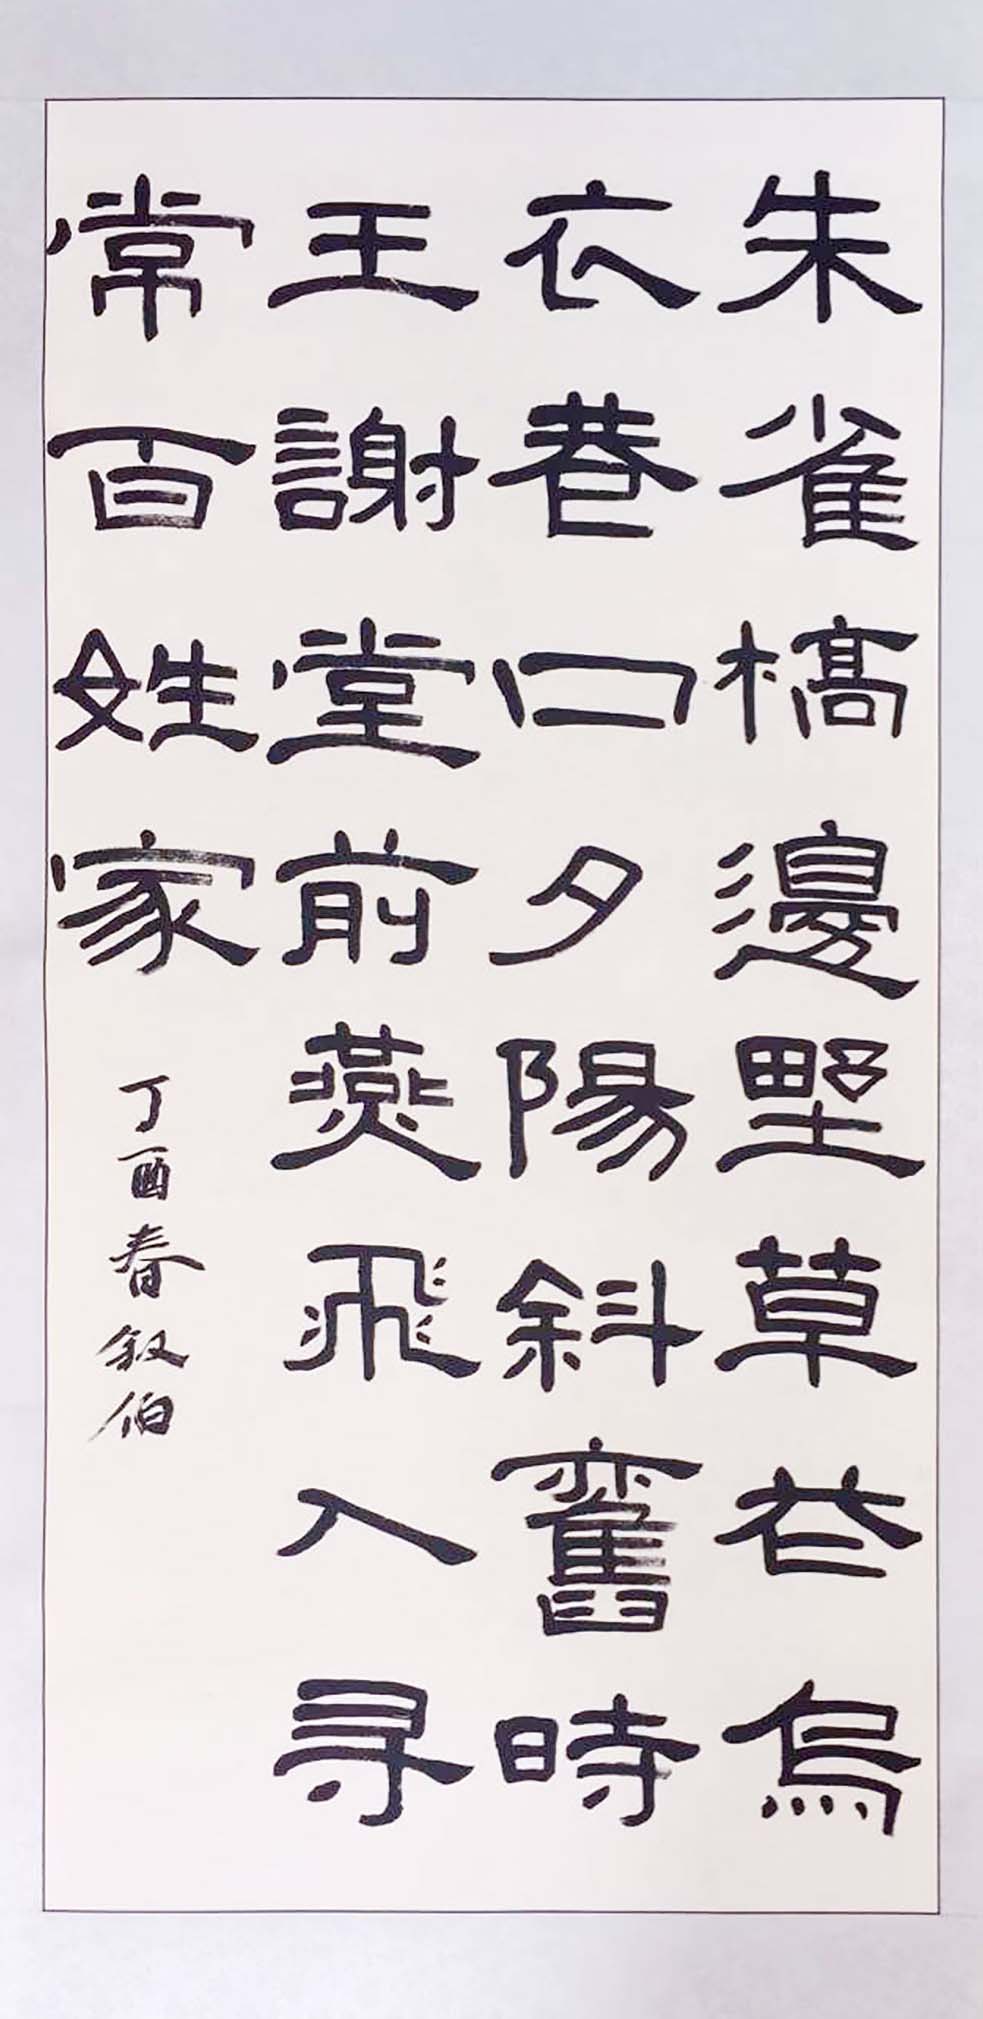 朱雀橋邊野草花烏
衣巷口夕陽斜舊時
王謝堂前燕飛入寻
常百姓家
丁酉春叙伯